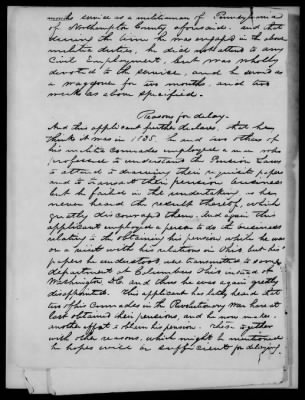 months service as a militiaman of Pennsylvania
of Northampton County aforesaid, and that
during the time he was engaged in the above
militia duties, he did not attend to any
Civil Employment, but was wholly
devoted to the service, and he served as
a wagoner for two months, and two
weeks as above specified.
Reasons for delay.
And this applicant further declares, that he
thinks it was in 1835. he and two others of
his militia Comrades employed a man who
professed to understand the Pension Laws
to attend to drawing their requisite papers
and to transact their pension business
but he failed in the undertaking or he
never heard the result thereof, which
greatly discouraged them. And again this
applicant employed a person to do the business
relating to the obtaining his pension while he was
on a visit with his relations in Ohio but his
papers he understood were transmitted to some
department at Columbus Ohio instead of
Washington D.C. and thus he was again greatly
disappointed. This applicant has lately heard that
two of his Comrades in the Revolutionary War have at
last obtained their pensions, and he now makes
another effort to obtain his pension. This together
with other reasons, which might be mentioned
he hopes will be sufficient for delaying.